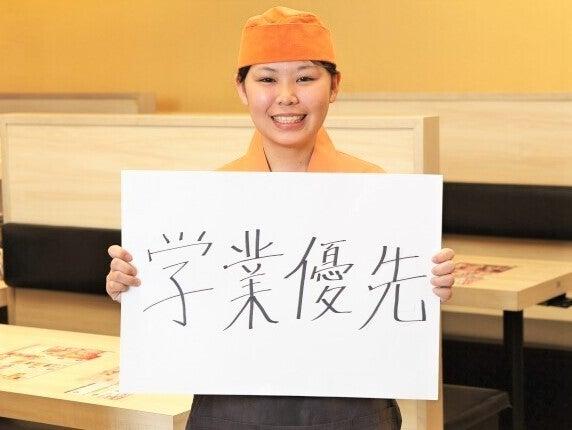 学業優先